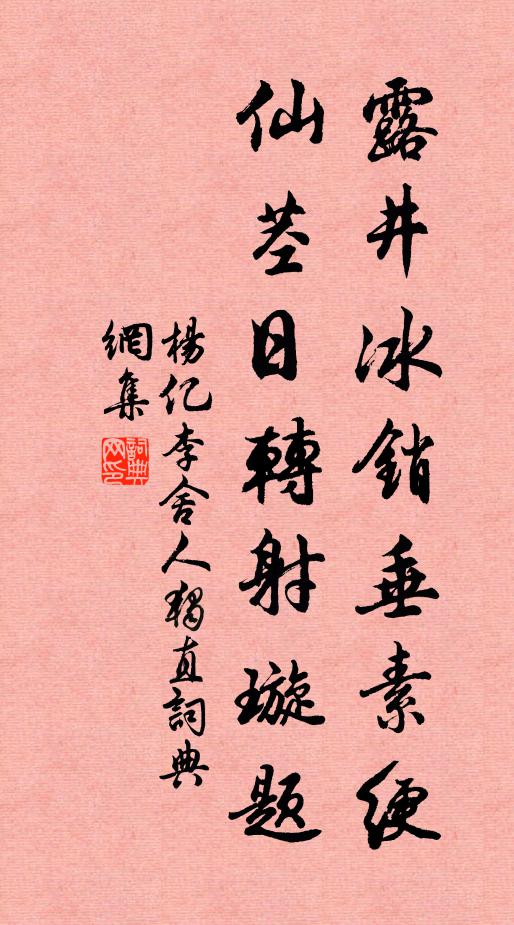 露井冰銷垂素綆
仙茎日轉射璇題
楊亿李舍人獨直詞典
網集
詞典網印